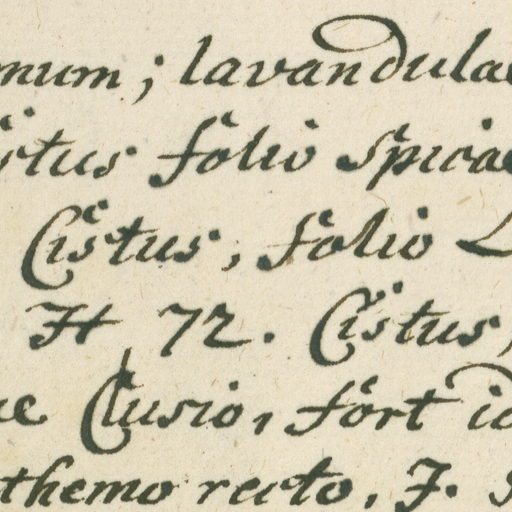 num; lavandulae
istus folio spicae
Cistus, folio L
H 72. Cistus,
ae Clusio, fort id
themo recto, J. s